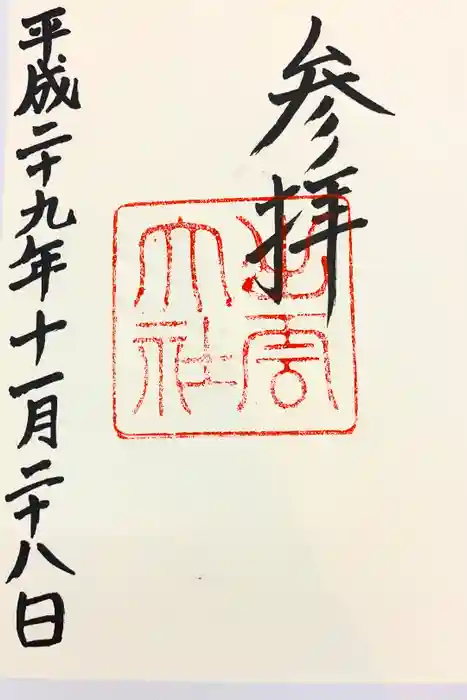 参拝
出雲
大社
平成二十九年十一月二十八日